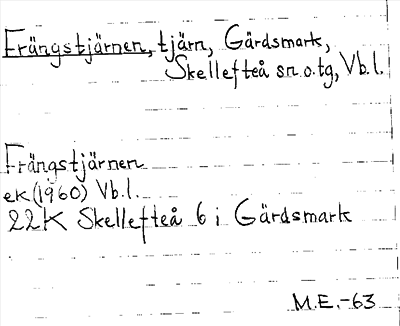 Frängstjärnen, tjärn, Gärdsmark,
Skellefteå sn.o.tg, Vb.l.
Frängstjärnen
ek(1960) Vb.l.
22K Skellefteå 6 i Gärdsmark
M.E.-63